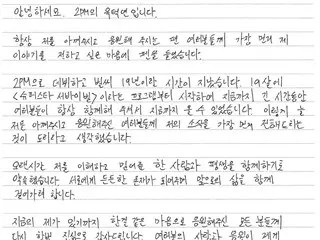 안녕하세요. 2PM의 옥택연입니다.
항상 저를 아껴주시고 응원해 주시는 팬 여러분들께 가장 먼저 제
이야기를 전하고 싶은 마음에 펜을 들었습니다.
2PM으로 데뷔하고 벌써 19년이란 시간이 지났습니다. 19살에
<슈퍼스타 서바이벌>이라는 프로그램부터 시작하여 지금까지 긴 시간동안
여러분들이 항상 함께해 주셔서 지금까지 올 수 있었습니다. 이렇게 늘
저를 아껴주시고 응원해주신 여러분들께 저의 소식을 가장 먼저 전해드리는
것이 도리라고 생각했습니다.
오랜시간 저를 이해하고 믿어준 한 사람과 평생을 함께하기로
약속했습니다. 서로에게 든든한 존재가 되어주며 앞으로의 삶을 함께
걸어가려 합니다.
지금의 제가 있기까지 한결 같은 마음으로 응원해주신 모든 분들께
다시 한번 진심으로 감사드립니다. 여러분의 사랑과 응원이 제게